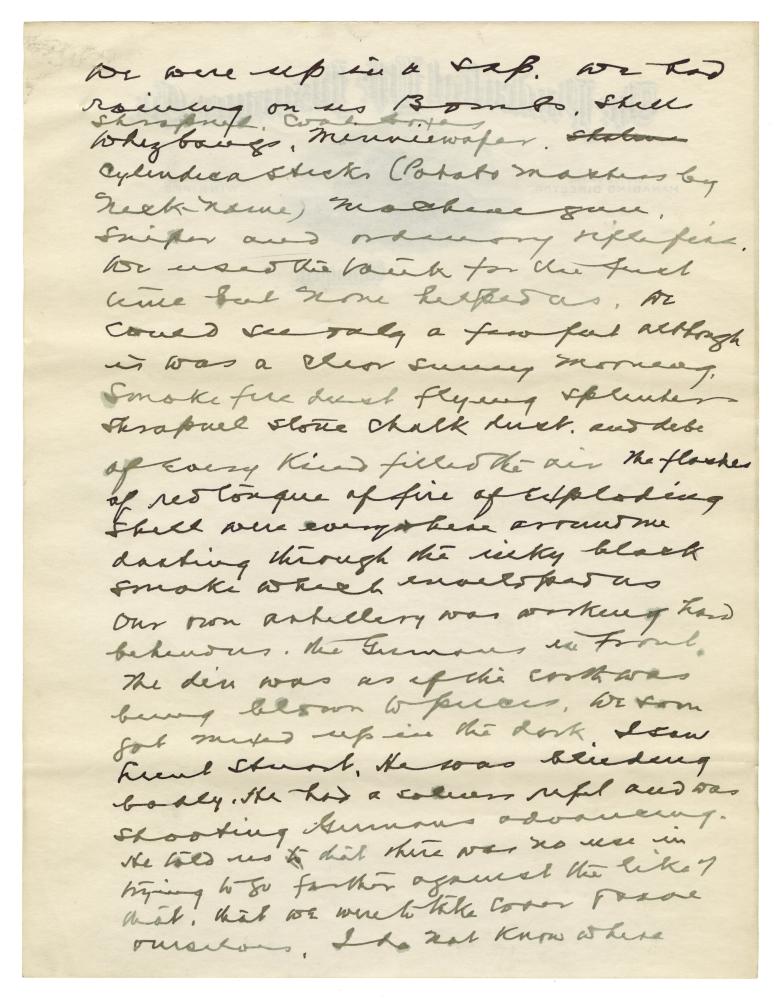 We were up in a Sap. We had
raining on us Bombs. Shell
Shrapnel. Coalboxes
Whizbangs, Minniewafer.
Cylindica Sticks (Potato Mashers by
Neck-Name) Machine gun,
Sniper and ordinary rifle fire.
We used the tank for the first
time but None helped us. We
could see only a few feet although
it was a clear sunny morning.
Smoke fire dust flying splinters
Shrapnel stone chalk dust. and debe
of every Kind filled the air The flashes
of red tongue of fire of exploding
Shell were everywhere around me
dashing through the inky black
smoke which enveloped us
Our own artillery was working hard
behind us. the Germans in Front.
The din was as if the earth was
being blown to pieces. We soon
got mixed up in the dark. I saw
Lieut Stuart. He was bleeding
badly. He had a soldiers rifel and was
shooting Germans advancing.
He told us that there was no use in
trying to go farther against the like of
that. that we were to take cover & save
ourselves. I do not know where